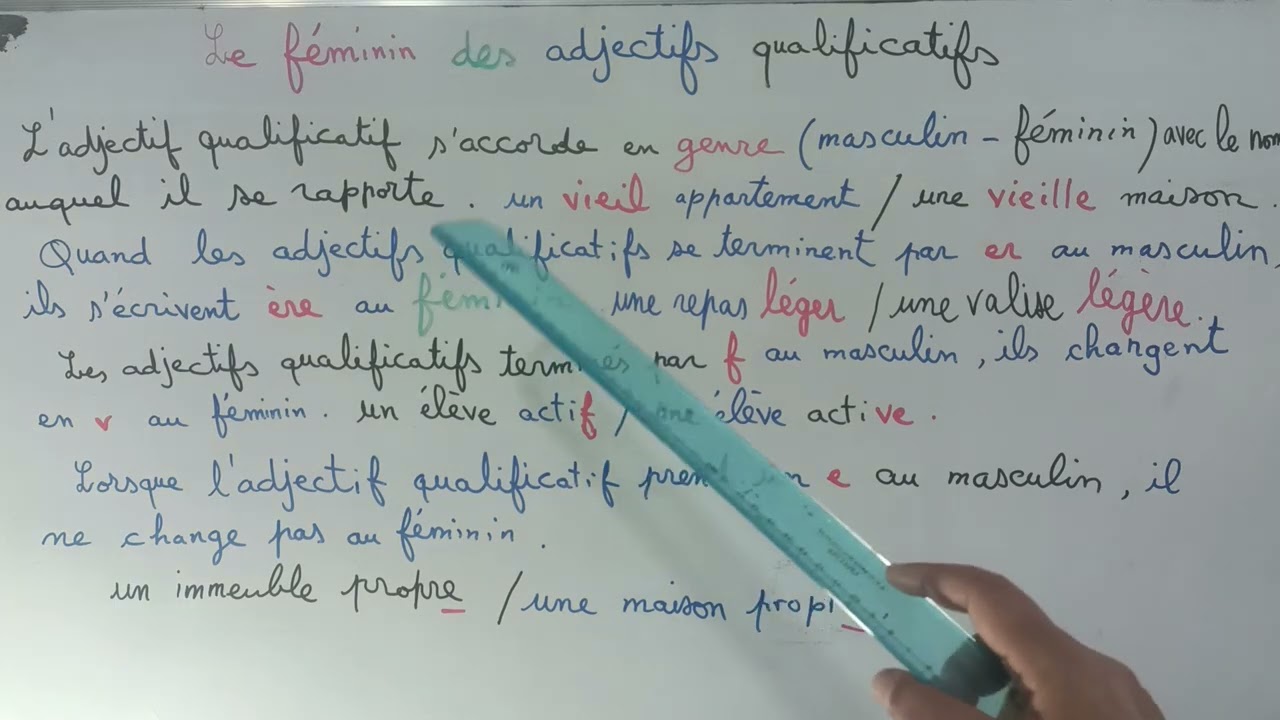 Le féminin des adjectifs qualificatifs
L'adjectif qualificatif s'accorde en genre (masculin - féminin) avec le nom
auquel il se rapporte. un vieil appartement / une vieille maison.
Quand les adjectifs qualificatifs se terminent par er au masculin,
ils s'écrivent ère au féminin une repas léger / une valise légère.
Les adjectifs qualificatifs terminés par f au masculin, ils changent
en v au féminin. un élève actif / une élève active.
Lorsque l'adjectif qualificatif prend un e au masculin, il
ne change pas au féminin.
un immeuble propre / une maison